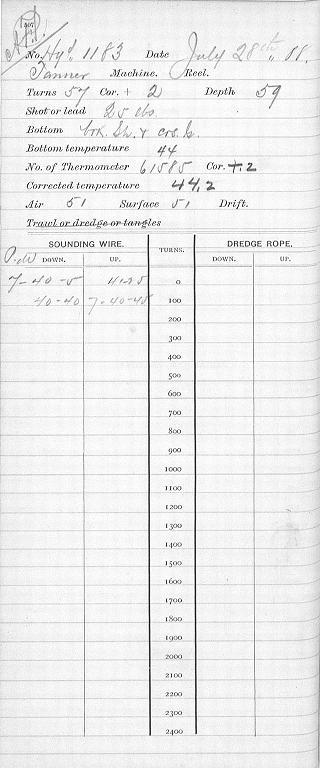 No. Hyd. 1183 Date July 28th, 88.
Tanner Machine. Reel.
Turns 57 Cor. + 2 Depth 59
Shot or lead 25 lbs.
Bottom brk. Sh. & crs. G.
Bottom temperature 44
No. of Thermometer 61585 Cor. +.2
Corrected temperature 44.2
Air 51 Surface 51 Drift.
Trawl or dredge or tangles
SOUNDING WIRE. TURNS. DREDGE ROPE.
DOWN. UP. DOWN. UP.
7-40-5 41-25 0
40-40 7-40-45 100
200
300
400
500
600
700
800
900
1000
1100
1200
1300
1400
1500
1600
1700
1800
1900
2000
2100
2200
2300
2400